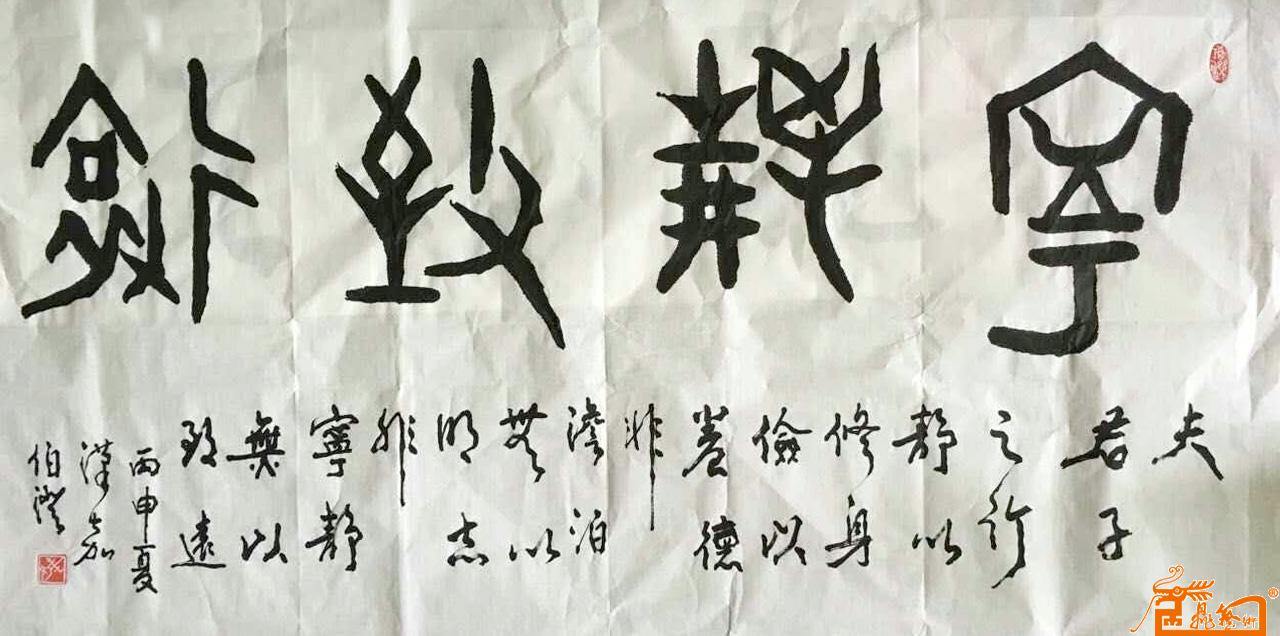 寧靜致儉
夫
君子
之行
靜以
修身
儉以
養德
非
澹泊
無以
明志
非
寧靜
無以
致遠
丙申夏
漢嘉
伯